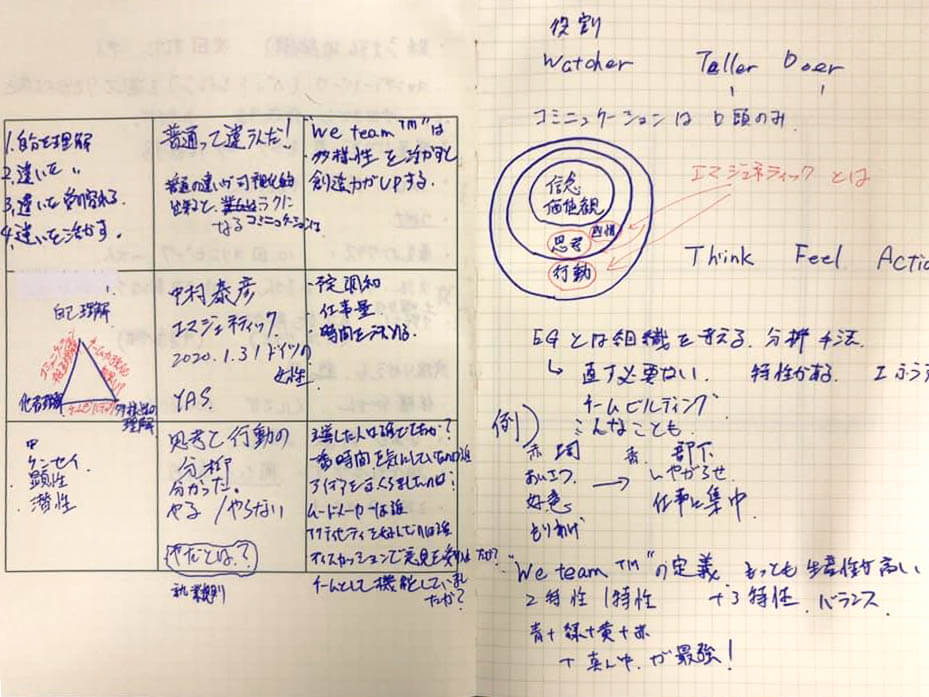 1.自分を理解
2.違いを 〃
3.違いを受け容れる
4.違いを活かす。
普通って違うんだ!
普通の違いが可視化的
出来ると、ラクに
なる コミュニケーションは
"We team™"は
多様性を活かすと
創造力がUPする。
自己理解
他者理解
理解
中村泰彦
エマジェネティック
2020.1.31 ドイツの
女性
YAS.
・予定調和
・仕事量
・時間を決める。
ケンセイ
顕性
潜性
思考と行動の
分かった。
やる/やらない
やだとは?
一番時間を気にしていたのは誰
ムードメーカーは誰
ディスカッションで意見を
チームとして機能していました
たか?
役割
Watcher Teller Doer
コミニュケーションは口頭のみ.
エマジェネティックとは
信念
価値観
思考 感情
行動
Think Feel Actio
EGとは組織を考える、分析手法.
↳ 直す必要ない. 特性がある.
チームビルディング
例) こんなことも
部下
あいさつ → いやがらせ
好意 仕事に集中
もりあげ
"We team™"の定義. もっとも生産性が高い
2特性 1特性 +3特性 バランス
青+緑+黄+赤
+真ん中.が最強!